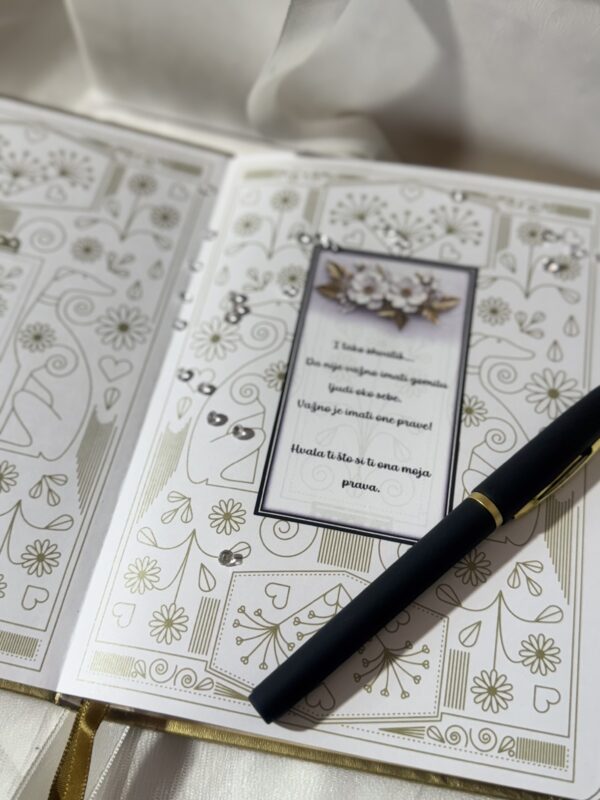 I tako shvatiš...
Da nije važno imati gomilu
ljudi oko sebe.
Važno je imati one prave!
Hvala ti što si ti ona moja
prava.